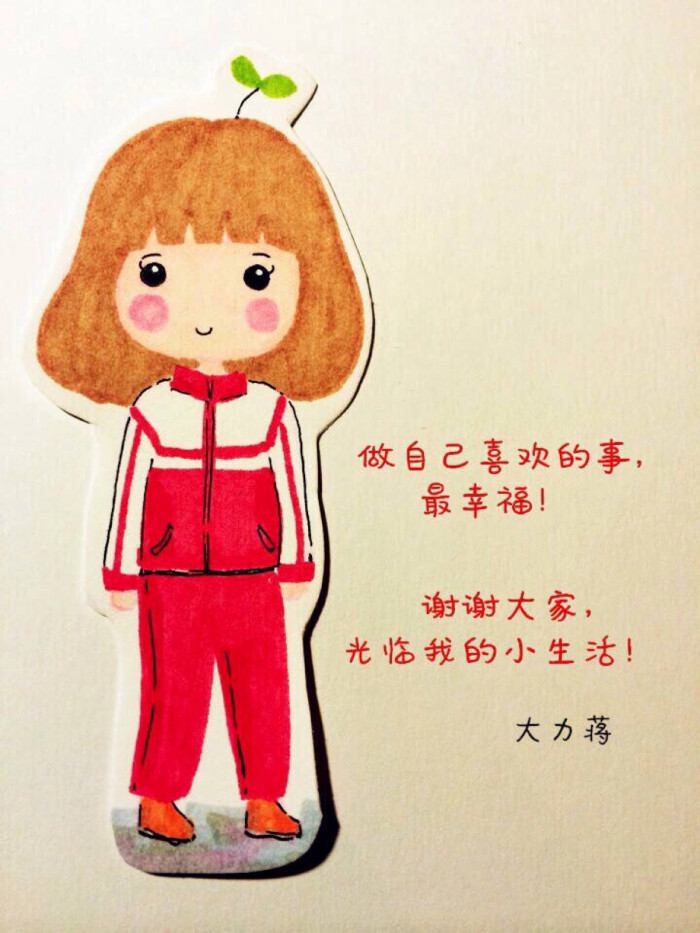 做自己喜欢的事，
最幸福！
谢谢大家，
光临我的小生活！
大力蒋